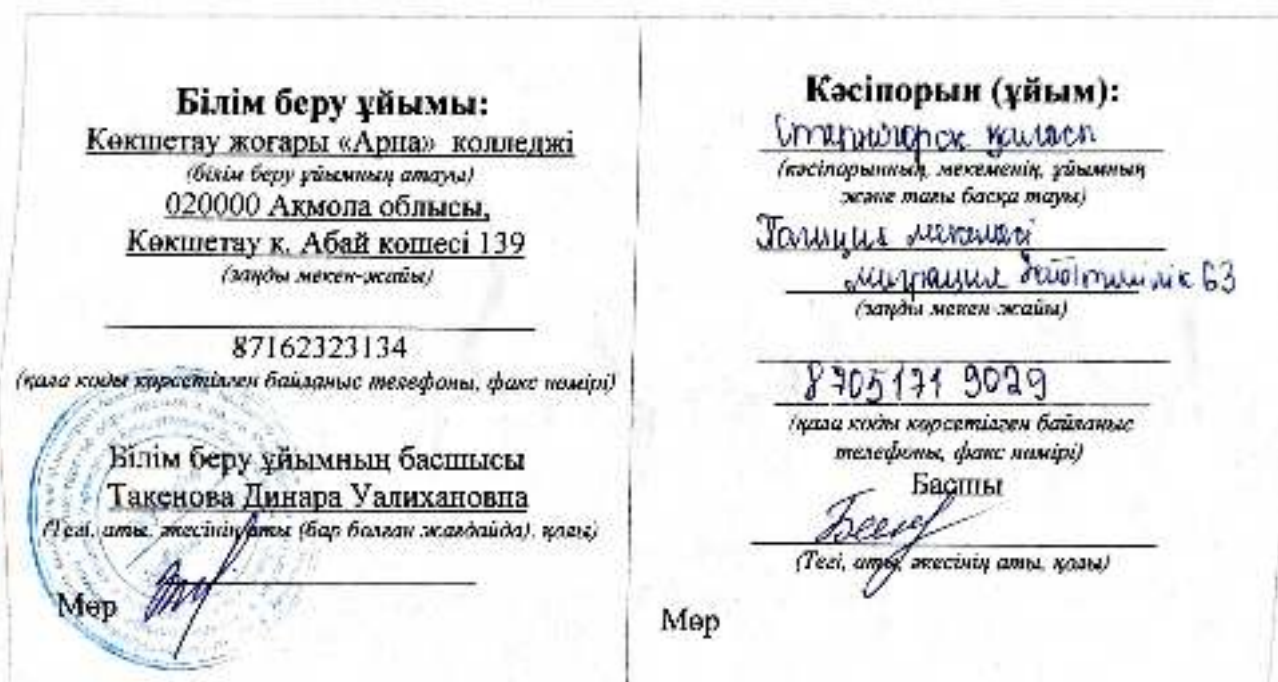 Білім беру ұйымы:
Көкшетау жоғары «Арна» колледжі
(білім беру ұйымның атауы)
020000 Ақмола облысы,
Көкшетау к. Абай көшесі 139
(заңды мекен-жайы)
87162323134
(қала коды көрсетілген байланыс телефоны, факс нөмірі)
Білім беру ұйымның басшысы
Такенова Динара Уалихановна
(Тегі, аты, әкесінің аты (бар болған жағдайда), қолы)
Мөр
Кәсіпорын (ұйым):
Степногорск қаласы
(кәсіпорынның, мекеменің, ұйымның
және тағы басқа тауы)
Полиция мекемесі
миграция 63
(заңды мекен-жайы)
8705171 9029
(қала коды көрсетілген байланыс
телефоны, факс нөмірі)
Басшы
(Тегі, аты, әкесінің аты, қолы)
Мөр